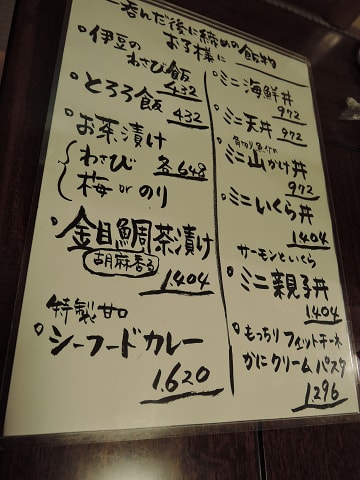 呑んだ後に締めの飯物
お子様に
伊豆の
わさび飯 432
とろろ飯 432
お茶漬け
わさび 各648
梅 or のり
金目鯛茶漬け
胡麻香る
1.404
特製甘口
シーフードカレー
1.620
ミニ海鮮丼
972
ミニ天丼 972
ミニ山かけ丼
972
ミニいくら丼
1.404
サーモンといくら
ミニ親子丼
1.404
もっちりフィットチーネ
かにクリームパスタ
1.296